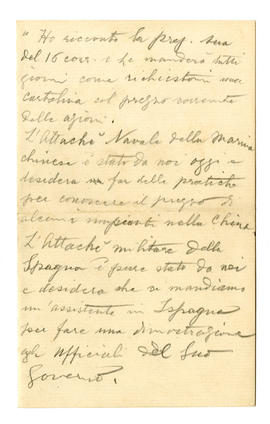 " Ho ricevuto la preg. sua
del 16 corr. e Le manderò tutti
giorni come richiestomi una
cartolina col prezzo corrente
delle azioni.
L'Attaché Navale della Marina
chinese è stato da noi oggi e
desidera far delle pratiche
per conoscere il prezzo di
alcuni impianti nella China.
L'Attaché militare della
Spagna è pure stato da noi
e desidera che si mandiamo
un'assistente in Ispagna
per fare una dimostrazione
agli Ufficiali del Suo
Governo.